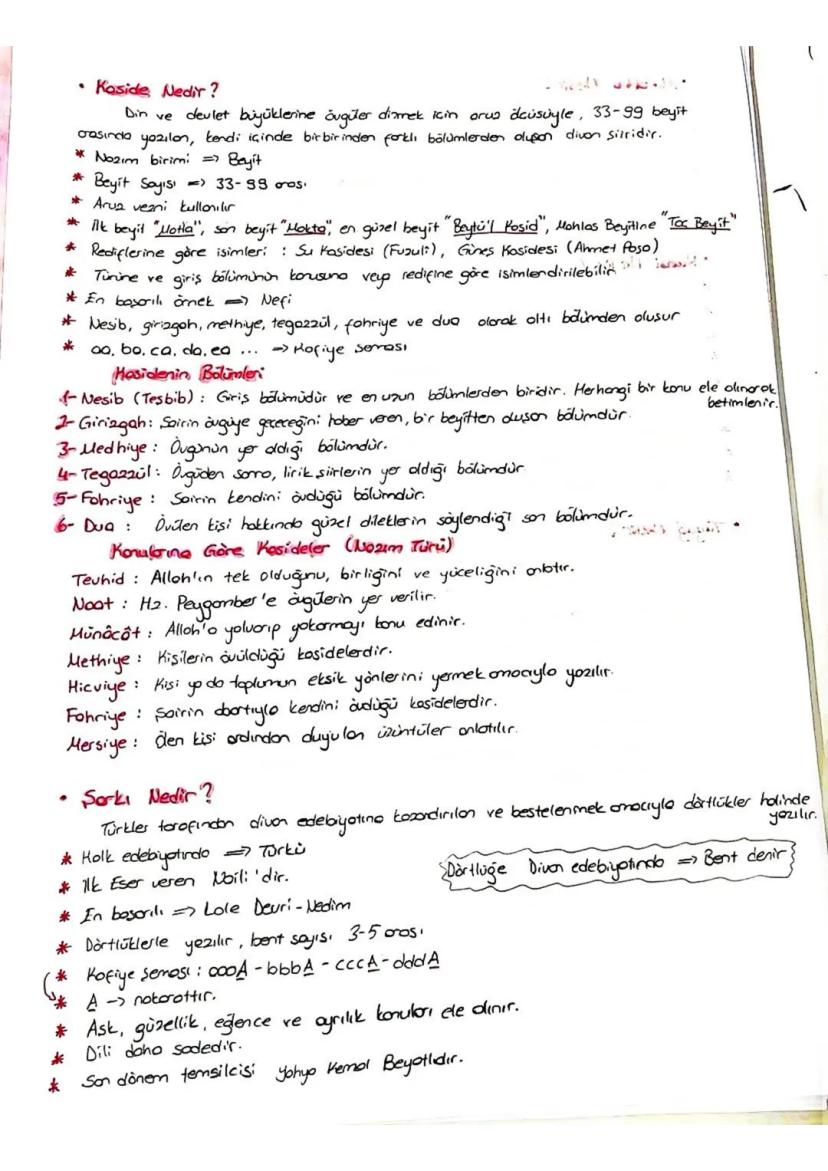 • Kaside Nedir?
Din ve devlet büyüklerine övgüler dizmek için aruz ölçüsüyle, 33-99 beyit
arasında yazılan, kendi içinde birbirinden farklı bölümlerden oluşan divan şiiridir.
* Nazım birimi => Beyit
* Beyit Sayısı => 33-99 arası
* Aruz vezni kullanılır
* İlk beyit "Matla", son beyit "Makta", en güzel beyit "Beytü'l Kasid", Mahlas Beyitine "Tac Beyit"
* Rediflerine göre isimleri : Su Kasidesi (Fuzuli), Güneş Kasidesi (Ahmet Paşa)
* Türüne ve giriş bölümünün konusuna veya redifine göre isimlendirilebilir
* En başarılı örnek => Nefi
* Nesib, girizgah, methiye, tegazzül, fahriye ve dua olarak altı bölümden oluşur
* aa, ba, ca, da, ea ... => Kafiye şeması
Kasidenin Bölümleri
1- Nesib (Teşbib) : Giriş bölümüdür ve en uzun bölümlerden biridir. Herhangi bir konu ele alınarak
betimlenir.
2- Girizgah: Şairin övgüye geçeceğini haber veren, bir beyitten oluşan bölümdür.
3- Medhiye : Övgünün yer aldığı bölümdür.
4- Tegazzül : Övgüden sonra, lirik şiirlerin yer aldığı bölümdür
5- Fahriye : Şairin kendini övdüğü bölümdür.
6- Dua : Övülen kişi hakkında güzel dileklerin söylendiği son bölümdür.
Konularına Göre Kasideler (Nazım Türü)
Tevhid : Allah'ın tek olduğunu, birliğini ve yüceliğini anlatır.
Naat : Hz. Peygamber'e övgülerin yer verilir.
Münâcât : Allah'a yalvarıp yakarmayı konu edinir.
Methiye : Kişilerin övüldüğü kasidelerdir.
Hicviye : Kişi ya da toplumun eksik yönlerini yermek amacıyla yazılır.
Fahriye : Şairin abartıyla kendini övdüğü kasidelerdir.
Mersiye : Ölen kişi ardından duyulan üzüntüler anlatılır.
• Şarkı Nedir?
Türkler tarafından divan edebiyatına kazandırılan ve bestelenmek amacıyla dörtlükler halinde
yazılır.
* Halk edebiyatında => Türkü
Dörtlüğe Divan edebiyatında => Bent denir
* İlk Eser veren Naili'dir.
* En başarılı => Lale Devri-Nedim
* Dörtlüklerle yazılır, bent sayısı 3-5 arası
* Kafiye şeması : aaaA - bbbA - cccA - dddA
* A -> nakarattır.
* Aşk, güzellik, eğlence ve ayrılık konuları ele alınır.
* Dili daha sadedir.
* Son dönem temsilcisi Yahya Kemal Beyatlıdır.